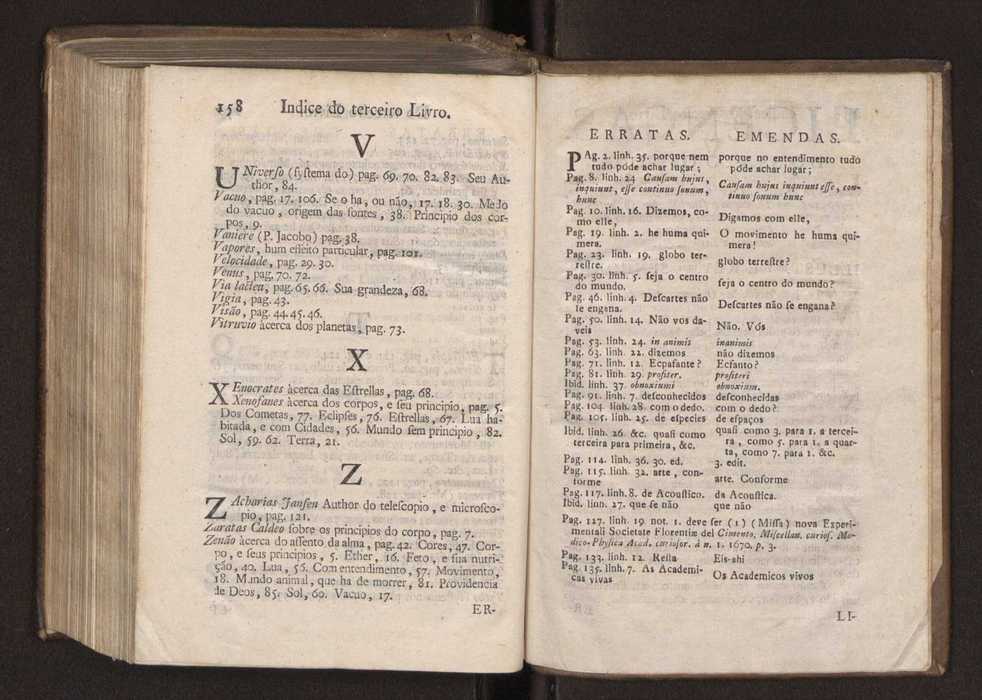 158 Indice do terceiro Livro.
V
UNiverso (systema do) pag. 69. 70. 82. 83. Seu Au-
thor, 84.
Vacuo, pag. 17. 106. Se o ha, ou não, 17. 18. 30. Medo
do vacuo, origem das fontes, 38. Principio dos cor-
pos, 9.
Vaniere (P. Jacobo) pag. 38.
Vapores, hum effeito particular, pag. 101.
Velocidade, pag. 29. 30.
Venus, pag. 70. 72.
Via lactea, pag. 65. 66. Sua grandeza, 68.
Vigia, pag. 43.
Visão, pag. 44. 45. 46.
Vitruvio àcerca dos planetas, pag. 73.
X
XEnocrates àcerca das Estrellas, pag. 68.
Xenofanes àcerca dos corpos, e seu principio, pag. 5.
Dos Cometas, 77. Eclipses, 76. Estrellas, 67. Lua ha-
bitada, e com Cidades, 56. Mundo sem principio, 82.
Sol, 59. 62. Terra, 21.
Z
ZAcharias Jansen Author do telescopio, e microsco-
pio, pag. 121.
Zaratas Caldeo sobre os principios do corpo, pag. 7.
Zenão àcerca do assento da alma, pag. 42. Cores, 47. Cor-
po, e seus principios, 5. Ether, 16. Feto, e sua nutri-
ção, 40. Lua, 56. Com entendimento, 57. Movimento,
18. Mundo animal, que ha de morrer, 81. Providencia
de Deos, 85. Sol, 60. Vacuo, 17.
ER-
ERRATAS. EMENDAS.
PAg. 2. linh. 35. porque nem porque no entendimento tudo
tudo póde achar lugar; póde achar lugar;
Pag. 8. linh. 24 Causam hujus, Causam hujus inquiunt esse, con-
inquiunt, esse continuo sonum, tinuo sonum hunc
hunc
Pag. 10. linh. 16. Dizemos, co- Digamos com elle,
mo elle,
Pag. 19. linh. 2. he huma qui- O movimento he huma qui-
mera. mera!
Pag. 23. linh. 19. globo ter- globo terrestre?
restre.
Pag. 30. linh. 5. seja o centro seja o centro do mundo?
do mundo.
Pag. 46. linh. 4. Descartes não Descartes não se engana?
se engana.
Pag. 50. linh. 14. Não vos da- Não. Vós
veis
Pag. 53. linh. 24. in animis inanimis
Pag. 63. linh. 22. dizemos não dizemos
Pag. 71. linh. 12. Ecpafante? Ecfanto?
Pag. 81. linh. 29. profiter. profiteri
Ibid. linh. 37. obnoxiumi obnoxium.
Pag. 91. linh. 7. desconhecidos desconhecidas
Pag. 104. linh. 28. com o dedo. com o dedo?
Pag. 105. linh. 25. de especies de espaços
Ibid. linh. 26 &c. quasi como quasi como 3. para 1. a tercei-
terceira para primeira, &c. ra, como 5. para 1. a quar-
ta, como 7. para 1. &c.
Pag. 114. linh. 36. 30. ed. 3. edit.
Pag. 115. linh. 32. arte, con- arte. Conforme
forme
Pag. 117. linh. 8. de Acoustico. da Acoustica.
Ibid. linh. 27. que se não que não
Pag. 127. linh. 19. not. 1. deve ser (1) (Missa) nova Experi-
mentali Societate Florentiæ del Cimento, Miscellan. curios. Me-
dico-Physica Acad. curiosor. à n. 1. 1670. p. 3.
Pag. 133. linh. 12. Resta Eis-ahi
Pag. 135. linh. 7. As Academi- Os Academicos vivos
cas vivas
LI-